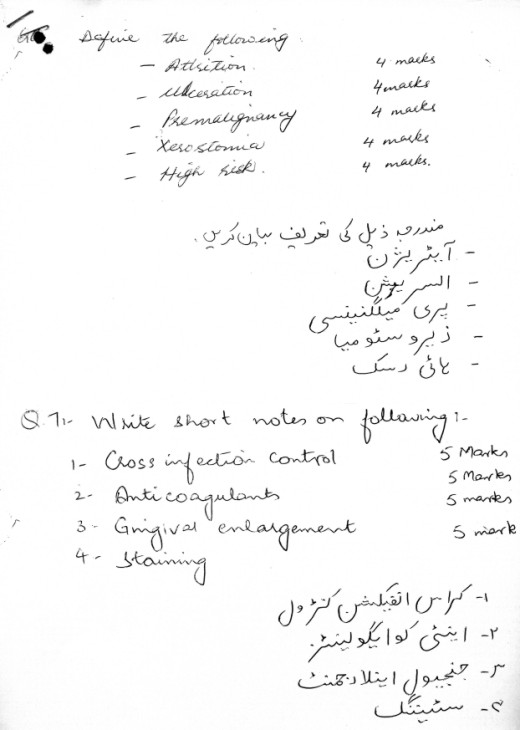 Define the following.
- Attrition. 4 marks
- Ulceration 4 marks
- Premalignancy 4 marks
- Xerostomia 4 marks
- High risk. 4 marks.
مندرجہ ذیل کی تعریف بیان کریں۔
- آیٹریژن
- السریشن
- پری میلگنینسی
- زیروسٹومیا
- ہائی رسک
Q.7:- Write short notes on following:-
1- Cross infection control 5 Marks
2- Anticoagulants 5 Marks
3- Gingival enlargement 5 marks
4- Staining 5 mark
۱- کراس انفیکشن کنٹرول
۲- اینٹی کوایگولینٹز
۳- جنجیول اینلارجمنٹ
۴- سٹیننگ